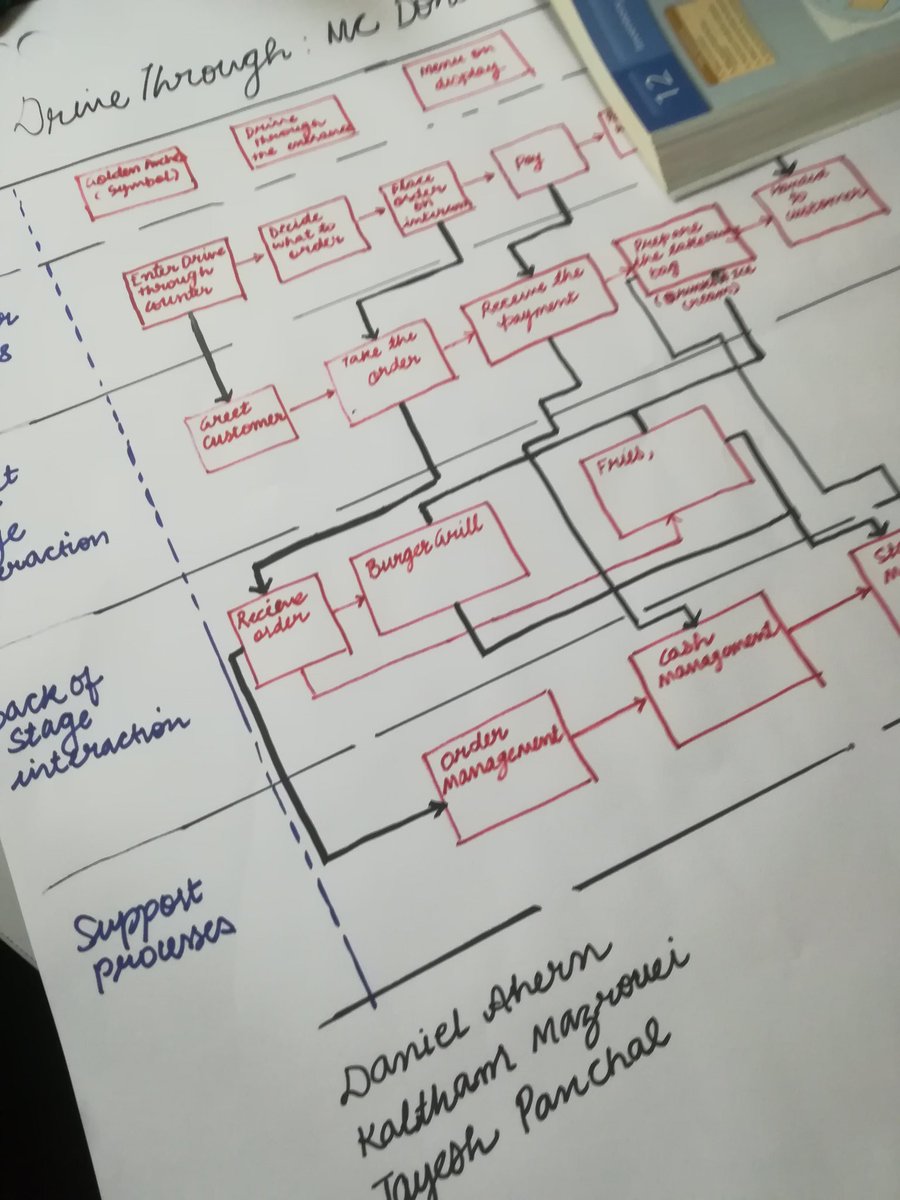 Drive Through: Mc Don
Golden Arche
(Symbol)
Drive
through
the entrance
Menu on
display
Enter Drive
through
counter
Decide
what to
order
Place
order
on
Pay
Greet
customer
Take the
order
Receive the
payment
Prepare
the takeaway
bag
Handed
to
customer
eraction
Recieve
order
Burger Grill
Fries,
Back of
Stage
interaction
Order
Management
Cash
Management
Support
processes
Daniel Ahern
Kaltham Mazrouei
Jayesh Panchal
12